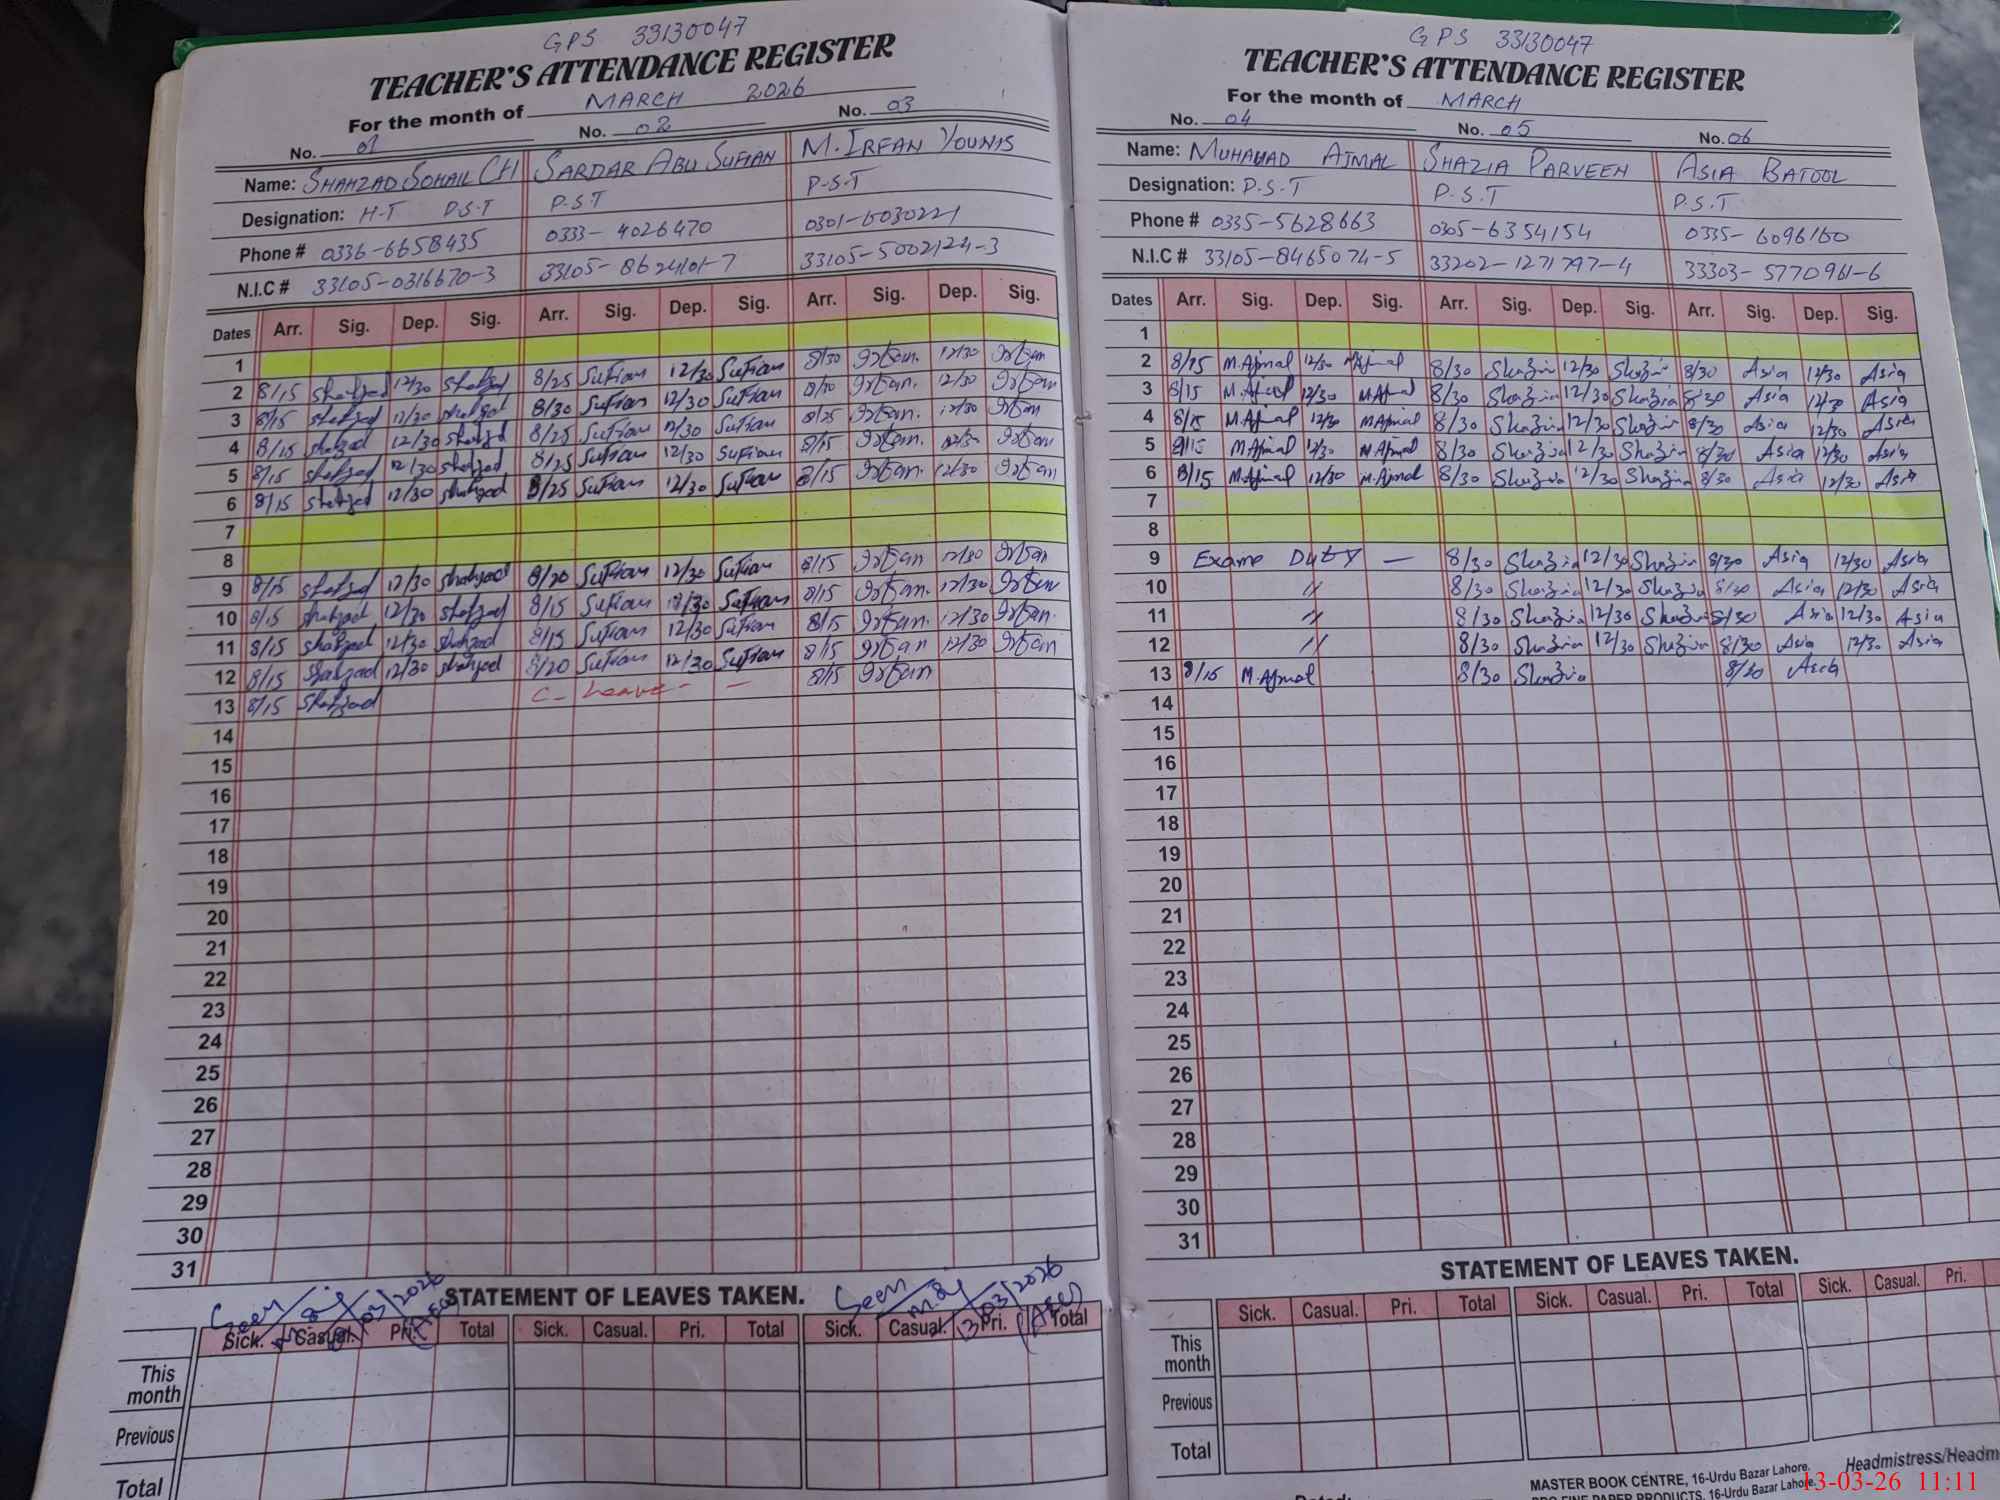 GPS 33130047
TEACHER'S ATTENDANCE REGISTER
For the month of MARCH 2026
No. 01 No. 02 No. 03
Name: SHAHZAD SOHAIL CH SARDAR ABU SUFIAN M. IRFAN YOUNIS
Designation: H-T P.S.T P.S.T P-S-T
Phone # 0336-6658435 0333-4026470 0301-6030221
N.I.C # 33105-0316670-3 33105-8624101-7 33105-5002124-3
Dates Arr. Sig. Dep. Sig. Arr. Sig. Dep. Sig. Arr. Sig. Dep. Sig.
1
2 8/15 Shahzad 12/30 Shahzad 8/25 Sufian 12/30 Sufian 8/30 Irfan. 12/30 Irfan
3 8/15 Shahzad 12/30 Shahzad 8/30 Sufian 12/30 Sufian Irfan. 12/30 Irfan
4 8/15 Shahzad 12/30 Shahzad 8/25 Sufian 12/30 Sufian 8/25 Irfan. 12/30 Irfan
5 8/15 Shahzad 12/30 Shahzad 8/25 Sufian 12/30 Sufian 8/15 Irfan. 12/30 Irfan
6 8/15 Shahzad 12/30 Shahzad 8/25 Sufian 12/30 Sufian 8/15 Irfan. 12/30 Irfan
7
8
9 8/15 Shahzad 12/30 Shahzad 8/20 Sufian 12/30 Sufian 8/15 Irfan 12/30 Irfan
10 8/15 Shahzad 12/30 Shahzad 8/15 Sufian 12/30 Sufian 8/15 Irfan. 12/30 Irfan
11 8/15 Shahzad 12/30 Shahzad 8/15 Sufian 12/30 Sufian 8/15 Irfan. 12/30 Irfan.
12 8/15 Shahzad 12/30 Shahzad 8/20 Sufian 12/30 Sufian 8/15 Irfan 12/30 Irfan
13 8/15 Shahzad C - Leave - - 8/15 Irfan
14
15
16
17
18
19
20
21
22
23
24
25
26
27
28
29
30
31
STATEMENT OF LEAVES TAKEN.
Seen 03/2026 (AEO) Seen 13/03/2026 (AEO)
Sick. Casual. Pri. Total Sick. Casual. Pri. Total Sick. Casual. Pri. Total
This month
Previous
Total
GPS 33130047
TEACHER'S ATTENDANCE REGISTER
For the month of MARCH
No. 04 No. 05 No. 06
Name: MUHAMAD AJMAL SHAZIA PARVEEN ASIA BATOOL
Designation: P.S.T P.S.T P.S.T
Phone # 0335-5628663 0305-6354154 0335-6096160
N.I.C # 33105-8465074-5 33202-1271797-4 33303-5770961-6
Dates Arr. Sig. Dep. Sig. Arr. Sig. Dep. Sig. Arr. Sig. Dep. Sig.
1
2 8/15 M.Ajmal 12/30 M.Ajmal 8/30 Shazia 12/30 Shazia 8/30 Asia 12/30 Asia
3 8/15 M.Ajmal 12/30 M.Ajmal 8/30 Shazia 12/30 Shazia 8/30 Asia 12/30 Asia
4 8/15 M.Ajmal 12/30 M.Ajmal 8/30 Shazia 12/30 Shazia 8/30 Asia 12/30 Asia
5 8/15 M.Ajmal 12/30 M.Ajmal 8/30 Shazia 12/30 Shazia 8/30 Asia 12/30 Asia
6 8/15 M.Ajmal 12/30 M.Ajmal 8/30 Shazia 12/30 Shazia 8/30 Asia 12/30 Asia
7
8
9 Exame Duty — 8/30 Shazia 12/30 Shazia 8/30 Asia 12/30 Asia
10 " 8/30 Shazia 12/30 Shazia 8/30 Asia 12/30 Asia
11 " 8/30 Shazia 12/30 Shazia 8/30 Asia 12/30 Asia
12 " 8/30 Shazia 12/30 Shazia 8/30 Asia 12/30 Asia
13 8/15 M.Ajmal 8/30 Shazia 8/20 Asia
14
15
16
17
18
19
20
21
22
23
24
25
26
27
28
29
30
31
STATEMENT OF LEAVES TAKEN.
Sick. Casual. Pri. Total Sick. Casual. Pri. Total Sick. Casual. Pri.
This month
Previous
Total
Headmistress/Headm
MASTER BOOK CENTRE, 16-Urdu Bazar Lahore.
PRO FINE PAPER PRODUCTS, 16-Urdu Bazar Lahore.
13-03-26 11:11